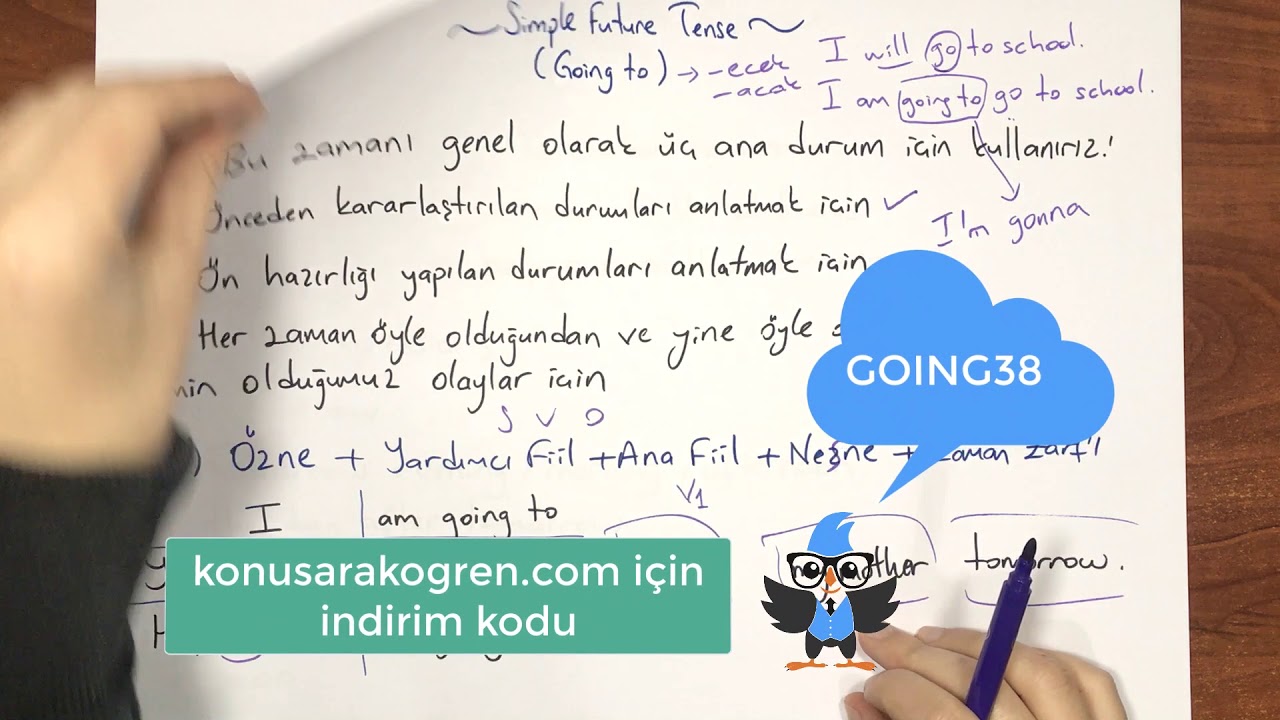 ~Simple Future Tense~
(Going to) → -ecek
-acak
I will go to school.
I am going to go to school.
I'm gonna
Bu zamanı genel olarak üç ana durum için kullanırız!
Önceden kararlaştırılan durumları anlatmak için ✓
Ön hazırlığı yapılan durumları anlatmak için
Her zaman öyle olduğundan ve yine öyle
olduğumuz olaylar için
GOING38
S V O
Özne + Yardımcı Fiil + Ana Fiil + Nesne + zarfı
V1
I am going to
mother tomorrow.
konusarakogren.com için
indirim kodu